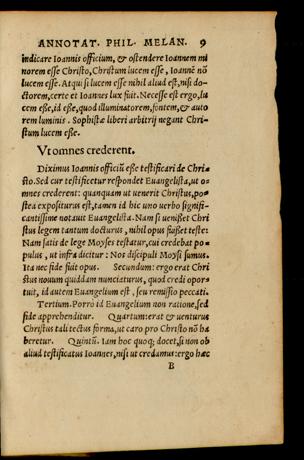 ANNOTAT. PHIL. MELAN. 9
indicare Ioannis officium, & ostendere Ioannem mi
norem esse Christo, Christum lucem esse, Ioannē nō
lucem esse. Atqui si lucem esse nihil aliud est, nisi do-
ctorem, certe et Ioannes lux fuit. Necesse est ergo, lu
cem eße, id eße, quod illuminatorem, fontem, & auto
rem luminis. Sophistæ liberi arbitrij negant Chri-
stum lucem eße.
Vt omnes crederent.
Diximus Ioannis officiū eße testificari de Chri-
sto. Sed cur testificetur respondet Euangelista, ut o-
mnes crederent: quanquam ut uenerit Christus, po-
stea expositurus est, tamen id hic uno uerbo signifi-
cantissime notauit Euangelista. Nam si uenißet Chri
stus legem tantum docturus, nihil opus fuißet teste:
Nam satis de lege Moyses testatur, cui credebat po-
pulus, ut infra dicitur: Nos discipuli Moysi sumus.
Ita nec fide fuit opus. Secundum: ergo erat Chri
stus nouum quiddam nunciaturus, quod credi opor-
tuit, id autem Euangelium est, seu remissio peccati.
Tertium. Porrò id Euangelium non ratione, sed
fide apprehenditur. Quartum: erat & uenturus
Christus tali tectus forma, ut caro pro Christo nō ha
beretur. Quintū. Iam hoc quoq; docet, si non ob
aliud testificatus Ioannes, nisi ut credamus: ergo hæc
B